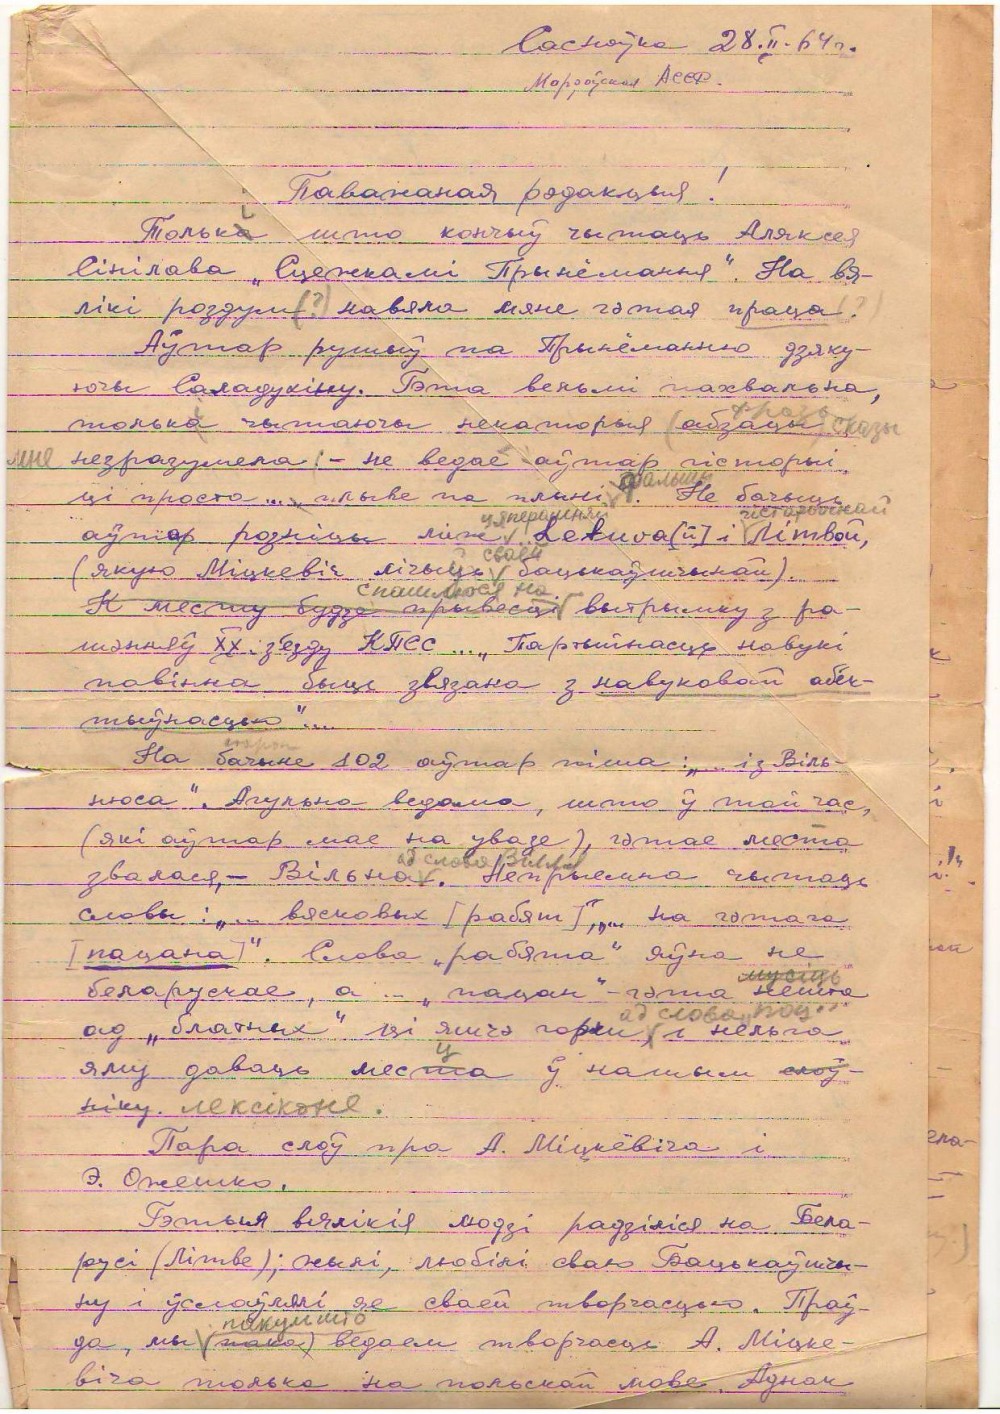 Сасноўка 28.II.64 г.
Мардоўская АССР.
Паважаная рэдакцыя!
Толькі што кончыў чытаць Аляксея
Сінілава „Сцежкамі Прынёмання“. На вя-
лікі роздум (?) навяла мяне гэтая праца (?).
Аўтар рушыў па Прынёманню дзяку-
ючы Саладухіну. Гэта вельмі пахвальна,
фразы
толькі чытаючы некаторыя (абзацы) сказы
мне незразумела: – не ведае аўтар гісторыі
фальшы
ці проста ... „плыве па плыні“. Не бачыць
цяперашняй гістарычнай
аўтар розніцы між Letuva[й] і Літвой,
сваёй
(якую Міцкевіч лічыць бацькаўшчынай).
спашлюся на
К месту будзе прывесці вытрымку з ра-
шэнняў XX з'езду КПСС ... „Партыйнасць навукі
павінна быць звязана з навуковай аб'ек-
тыўнасцью“....
На бачыне 102 аўтар піша: „... із Віль-
нюса“. Агульна ведама, што ў той час,
(які аўтар мае на увазе), гэтае места
ад слова Вілля
звалася, – Вільна. Непрыемна чытаць
словы: „... вясковых [рабят]“, „... на гэтага
[пацана]“. Слова „рабята“ яўна не
мусіць
беларускае, а ... „пацан“ – гэта нешта
ад слова „поц“
ад „блатных“ ці яшчэ горш, і нельга
ц
яму даваць места ў нашым слоў-
ніку. лексіконе.
Пара слоў пра А. Міцкевіча і
Э. Ожешко.
Гэтыя вялікія людзі радзіліся на Бела-
русі (Літве); жылі, любілі сваю Бацькаўшчы-
ну і ўслаўлялі яе сваей творчасцью. Праў-
пакуль што
да, мы (пока) ведаем творчасць А. Міцке-
віча толькі на польскай мове. Аднак